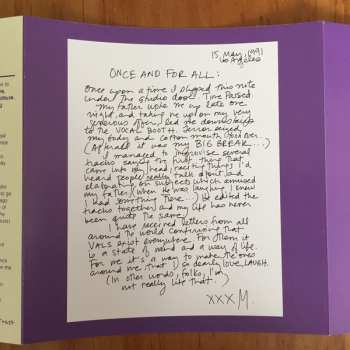 15, May, 1991
Los Angeles
ONCE AND FOR ALL:
Once upon a time I slipped this note
under the studio door. Time passed.
My father woke me up late one
night, and taking me up on my very
generous offer, led me downstairs
to the VOCAL BOOTH. Terror seized
my body and cotton mouth took over
(After all it was my BIG BREAK...)
I managed to improvise several
tracks saying the first thing that
came into my head, reciting things I'd
heard people really talk about and
elaborating on subjects which amused
my father. (When he was laughing I knew
I had something there...) He edited the
tracks together and my life has never
been quite the same.
I have received letters from all
around the world confirming that
VALS exist everywhere. For them it
is a state of mind and a way of life.
For me it's a way to make the ones
around me that I so dearly love, LAUGH.
(In other words, folks, I'm
not really like that.)
XXX M.